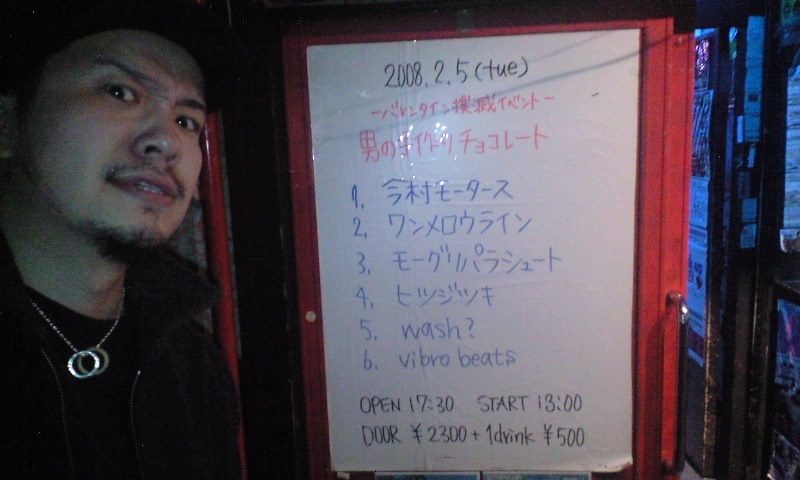 2008.2.5(tue)
-バレンタイン撲滅イベント-
男の手作りチョコレート
1. 今村モータース
2. ワンメロウライン
3. モーグリパラシュート
4. ヒツジツキ
5. wash?
6. vibro beats
OPEN 17:30 START 18:00
DOOR ¥2300+1drink ¥500